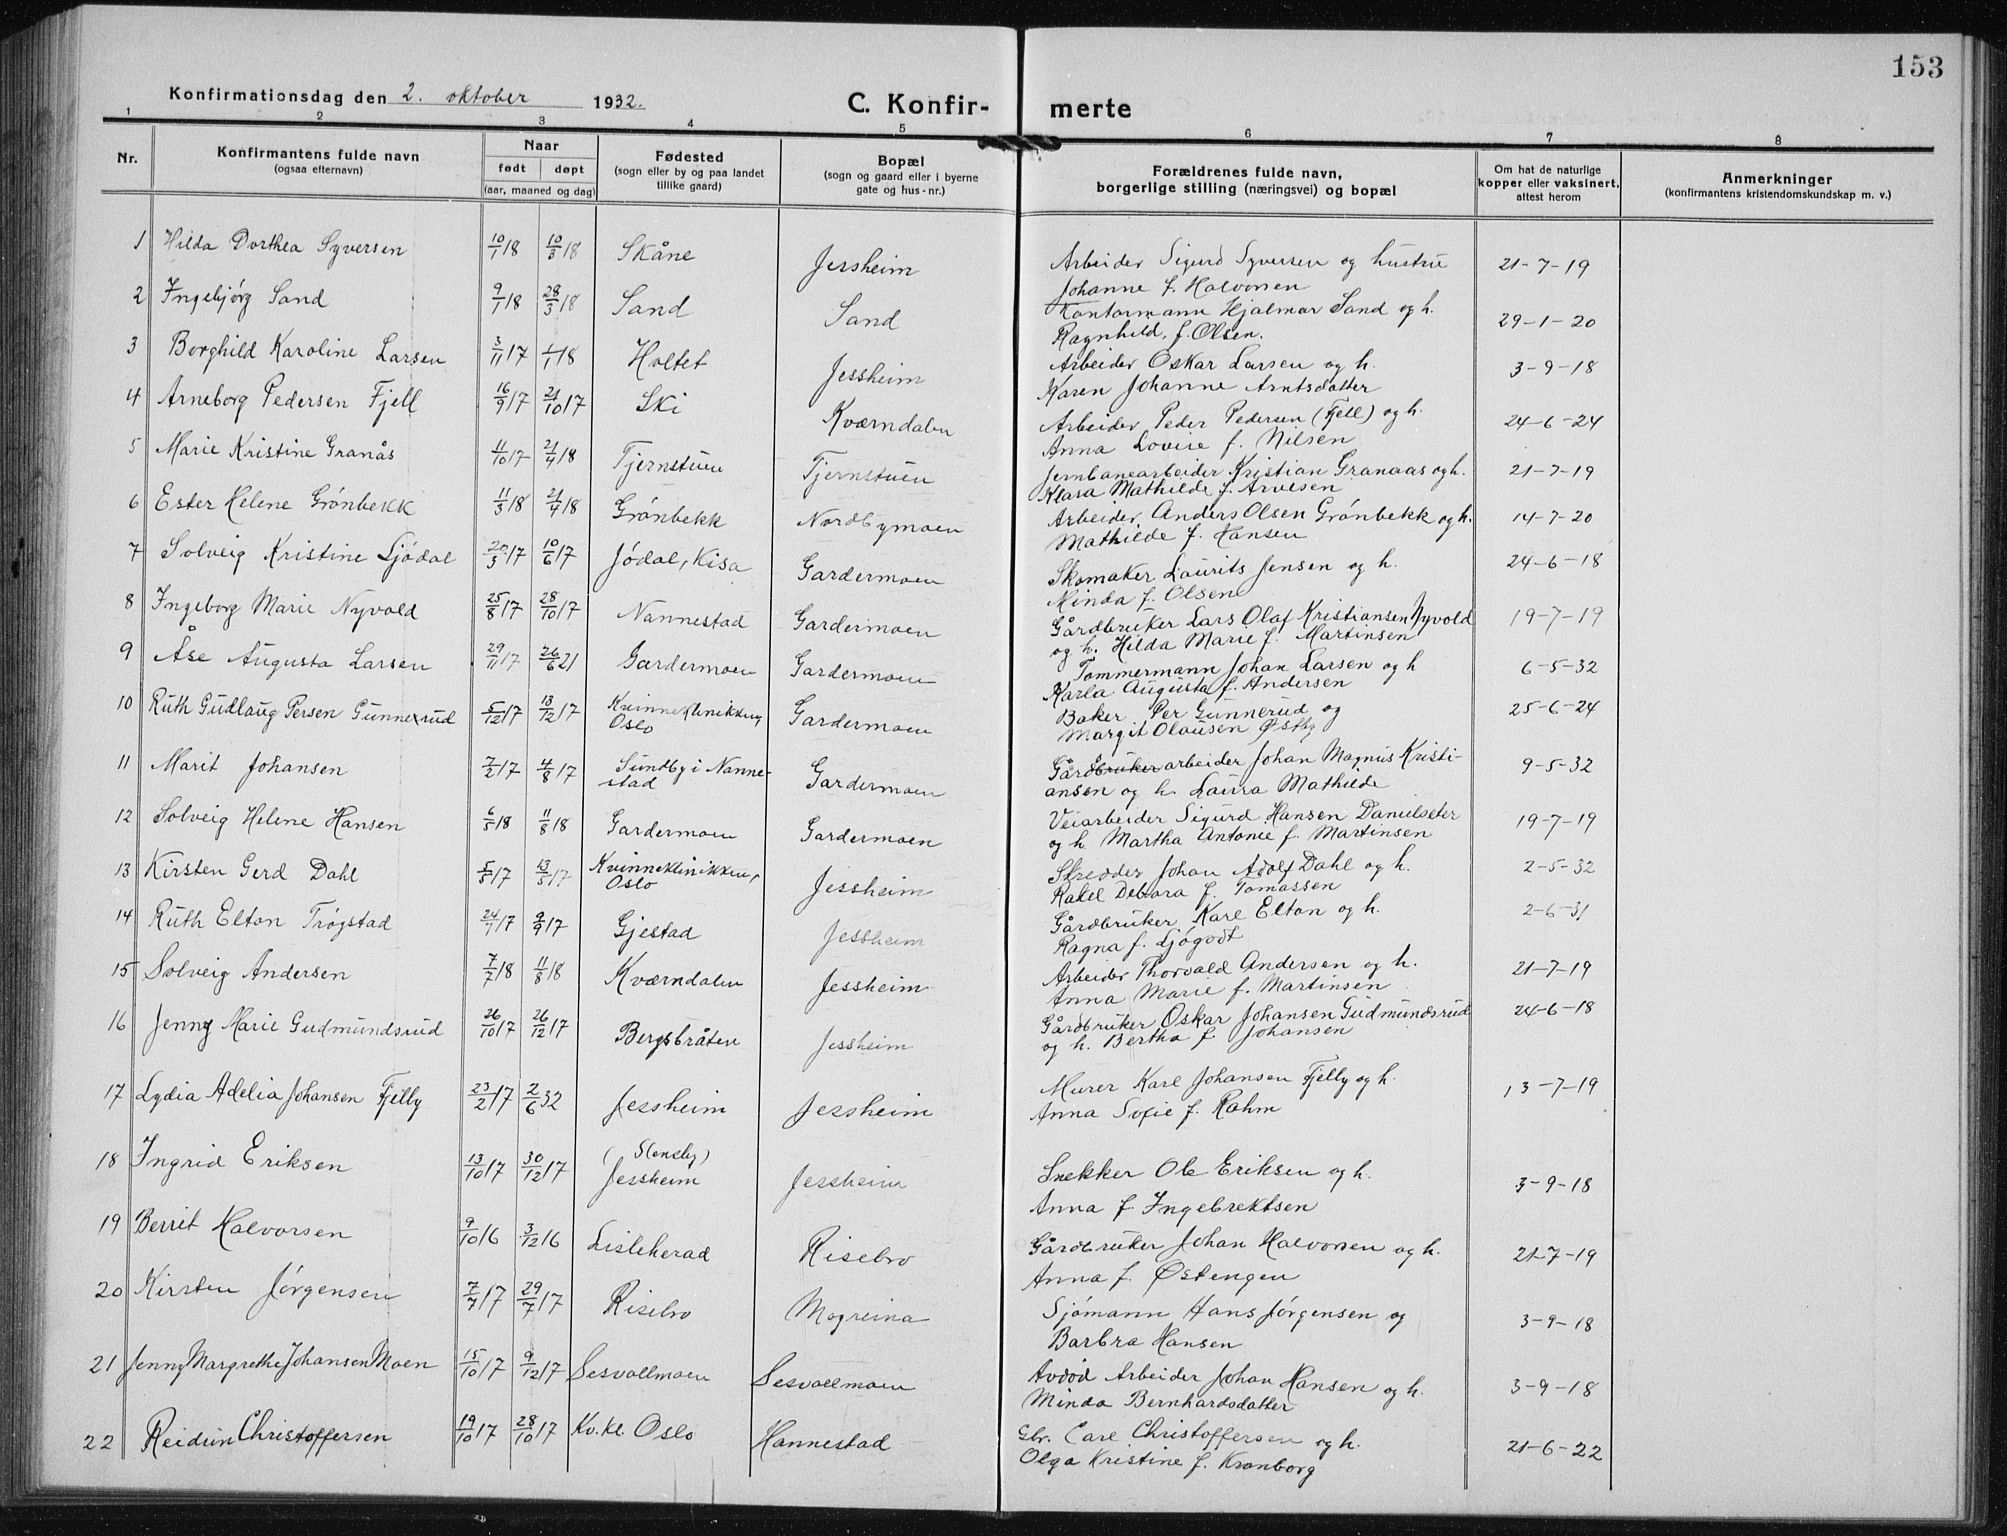 153
Konfirmationsdag den 2. oktober 1932.
C. Konfir- merte
1 2 3 4 5 6 7 8
Nr.
Konfirmantens fulde navn
(ogsaa efternavn)
Naar
født døpt
(aar, maaned og dag)
Fødested
(sogn eller by og paa landet
tillike gaard)
Bopæl
(sogn og gaard eller i byerne
gate og hus-nr.)
Forældrenes fulde navn,
borgerlige stilling (næringsvei) og bopæl
Om hat de naturlige
kopper eller vaksinert,
attest herom
Anmerkninger
(konfirmantens kristendomskundskap m. v.)
1 Hilda Dorthea Syversen 10/1 18 10/3 18 Skåne Jessheim Arbeider Sigurd Syversen og hustru 21-7-19
Johanne f. Halvorsen
2 Ingebjørg Sand 9/1 18 28/3 18 Sand Sand Kontormann Hjalmar Sand og h. 29-1-20
Ragnhild f. Olsen.
3 Borghild Karoline Larsen 3/11 17 1/1 18 Holtet Jessheim Arbeider Oskar Larsen og h. 3-9-18
Karen Johanne Arntsdatter
4 Arneborg Pedersen Fjell 16/9 17 21/10 17 Ski Kværndalen Arbeider Peder Pedersen (Fjell) og h. 24-6-24
Anna Lovise f. Nilsen
5 Marie Kristine Granås 11/10 17 21/4 18 Tjernstuen Tjernstuen Jernbanearbeider Kristian Granaas og h. 21-7-19
Klara Mathilde f. Arvesen
6 Ester Helene Grønbekk 11/3 18 21/4 18 Grønbekk Nordbymoen Arbeider Anders Olsen Grønbekk og h. 14-7-20
Mathilde f. Hansen
7 Solveig Kristine Ljødal 20/3 17 10/6 17 Jødal, Kisa Gardermoen Skomaker Laurits Jensen og h. 24-6-18
Minda f. Olsen
8 Ingeborg Marie Nyvold 25/8 17 28/10 17 Nannestad Gardermoen Gårdbruker Lars Olaf Kristiansen Nyvold 19-7-19
og h. Hilda Marie f. Martinsen
9 Åse Augusta Larsen 29/11 17 26/6 21 Gardermoen Gardermoen Tømmermann Johan Larsen og h 6-5-32
Karla Augusta f. Andersen
10 Ruth Gudlaug Persen Gunnerud 5/12 17 13/12 17 Kvinneklinikken, Gardermoen Baker Per Gunnerud og 25-6-24
Oslo Margit Olausen Østby
11 Marit Johansen 7/2 17 4/8 17 Sundby i Nanne- Gardermoen Gårdbruker arbeider Johan Magnus Kristi- 9-5-32
stad ansen og h. Laura Mathilde
12 Solveig Helene Hansen 6/5 18 11/8 18 Gardermoen Gardermoen Veiarbeider Sigurd Hansen Danielseter 19-7-19
og h. Martha Antonie f. Martinsen
13 Kirsten Gerd Dahl 5/5 17 13/5 17 Kvinneklinikken, Jessheim Skredder Johan Adolf Dahl og h. 2-5-32
Oslo Rakel Debora f. Tomassen
14 Ruth Elton Trøgstad 24/7 17 9/9 17 Gjestad Jessheim Gårdbruker Karl Elton og h. 2-6-31
Ragna f. Sjøgodt
15 Solveig Andersen 7/2 18 11/8 18 Kværndalen Jessheim Arbeider Thorvald Andersen og h. 21-7-19
Anna Marie f. Martinsen
16 Jenny Marie Gudmundsrud 26/10 17 26/12 17 Bergsbråten Jessheim Gårdbruker Oskar Johansen Gudmundsrud 24-6-18
og h. Bertha f. Johansen
17 Lydia Adelia Johansen Fjelly 23/2 17 2/6 32 Jessheim Jessheim Murer Karl Johansen Fjelly og h. 13-7-19
Anna Sofie f. Rahm
18 Ingrid Eriksen 13/10 17 30/12 17 (Slensby) Jessheim Jessheim Snekker Ole Eriksen og h. 3-9-18
Anna f. Ingebrektsen
19 Berrit Halvorsen 9/10 16 3/12 16 Lisleherad Risebro Gårdbruker Johan Halvorsen og h. 21-7-19
Anna f. Østengen
20 Kirsten Jørgensen 7/7 17 29/7 17 Risebro Mogreina Sjømann Hans Jørgensen og 3-9-18
Barbra Hansen
21 Jenny Margrethe Johansen Moen 15/10 17 9/12 17 Sesvollmoen Sesvollmoen Avdød Arbeider Johan Hansen og h. 3-9-18
Minda Bernhardsdatter
22 Reidun Christoffersen 19/10 17 28/10 17 Kv.kl. Oslo Hannestad Gbr. Carl Christoffersen og h. 21-6-22
Olga Kristine f. Kronborg